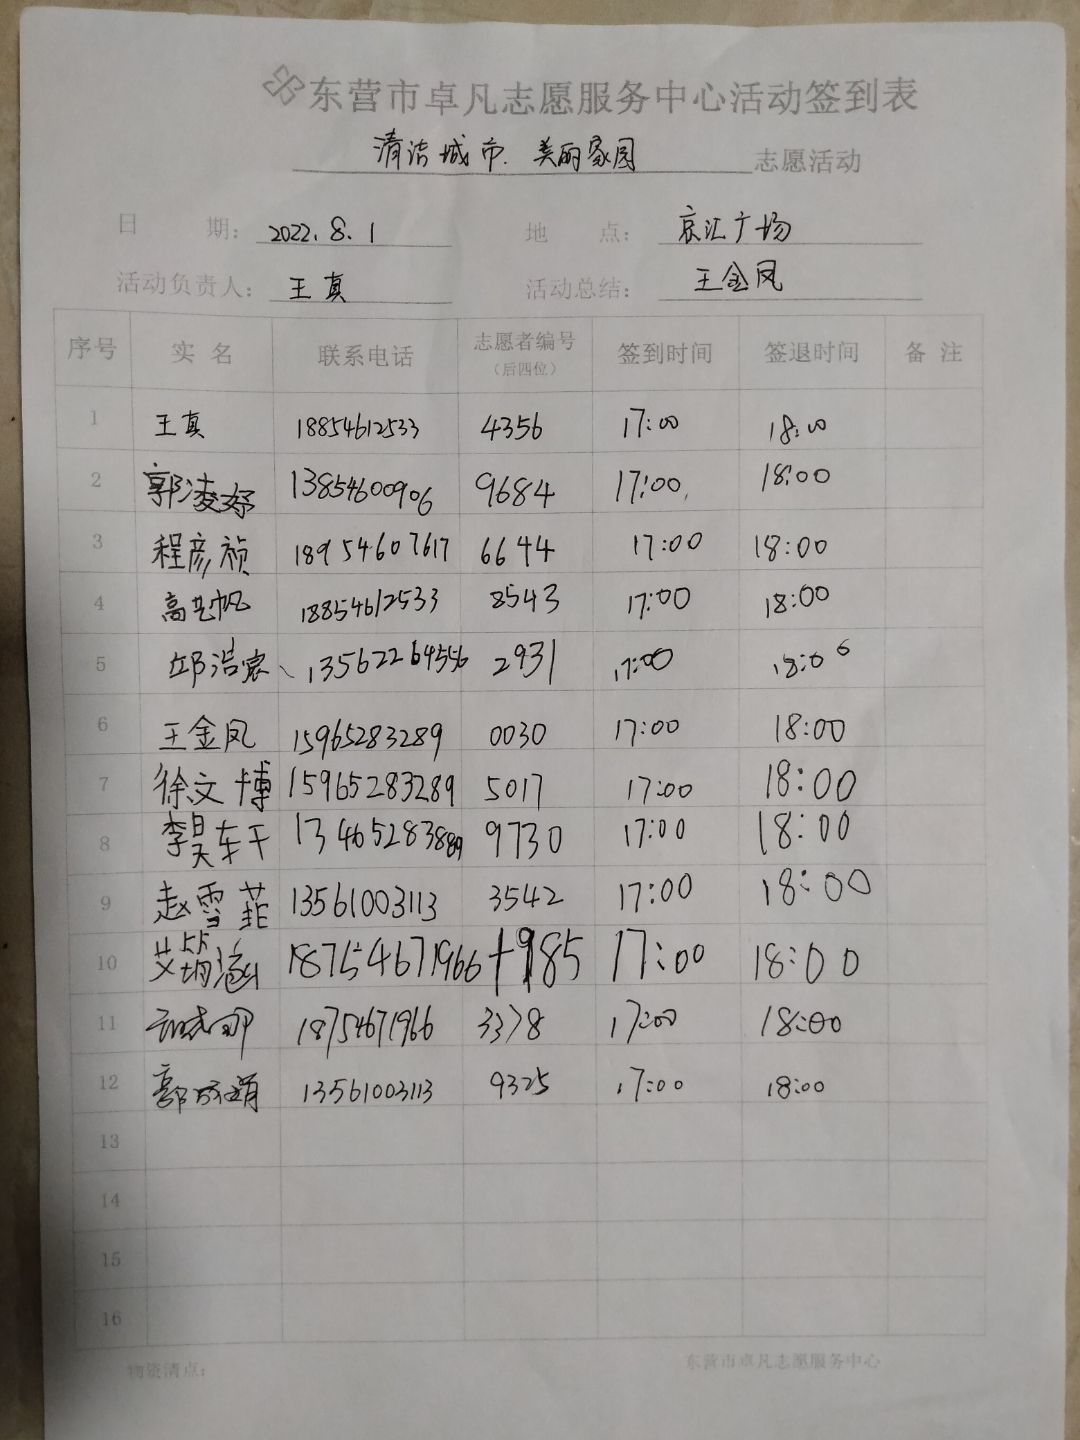 东营市卓凡志愿服务中心活动签到表
清洁城市.美丽家园 志愿活动
日 期: 2022.8.1 地 点: 京汇广场
活动负责人: 王真 活动总结: 王金凤
序号 实名 联系电话 志愿者编号 (后四位) 签到时间 签退时间 备注
1 王真 18854612533 4356 17:00 18:00
2 郭凌妤 13854600906 9684 17:00 18:00
3 程彦祯 18954607617 6644 17:00 18:00
4 高艺帆 18854612533 8543 17:00 18:00
5 邱浩宸 13562264556 2931 17:00 18:00
6 王金凤 15965283289 0030 17:00 18:00
7 徐文博 15965283289 5017 17:00 18:00
8 李昊轩 9730 17:00 18:00
9 赵雪菲 13561003113 3542 17:00 18:00
10 18754671966 985 17:00 18:00
11 18754671966 3378 17:00 18:00
12 郭 13561003113 9325 17:00 18:00
13
14
15
16
物资清点: 东营市卓凡志愿服务中心